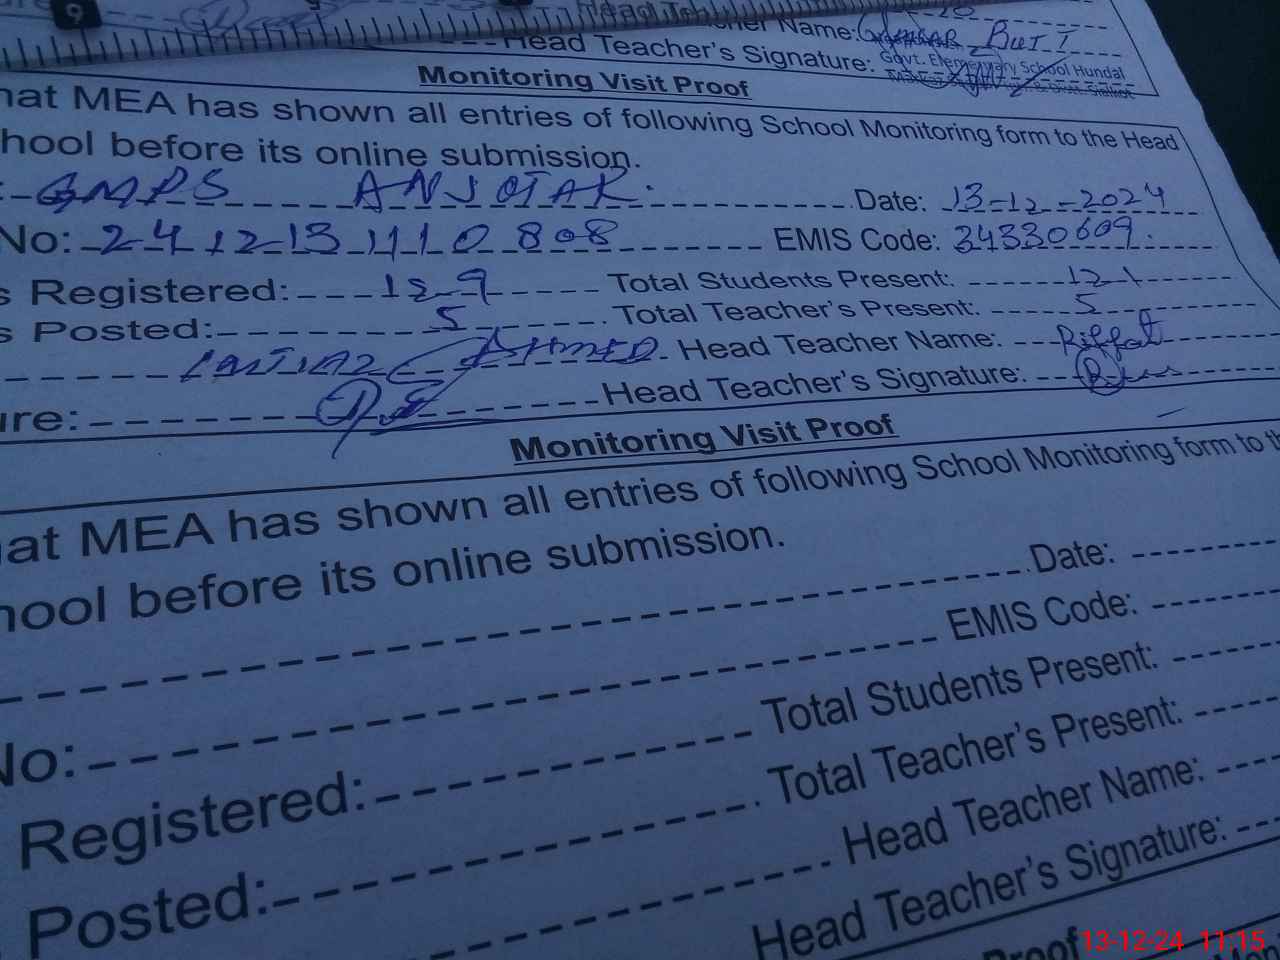 9
Head Teacher Name: BUTT
Head Teacher's Signature:
Govt. Elementary School Hundal
Monitoring Visit Proof
hat MEA has shown all entries of following School Monitoring form to the Head
hool before its online submission.
GMPS ANJOTAR. Date: 13-12-2024
No: 2412131110808 EMIS Code: 34330609.
s Registered: 129 Total Students Present: 121
s Posted: 5 Total Teacher's Present: 5
IMTIAZ AHMED Head Teacher Name: Riffat
ure: Head Teacher's Signature:
Monitoring Visit Proof
hat MEA has shown all entries of following School Monitoring form to th
hool before its online submission.
Date:
No: EMIS Code:
Registered: Total Students Present:
Posted: Total Teacher's Present:
Head Teacher Name:
Head Teacher's Signature:
Proof
13-12-24 11:15